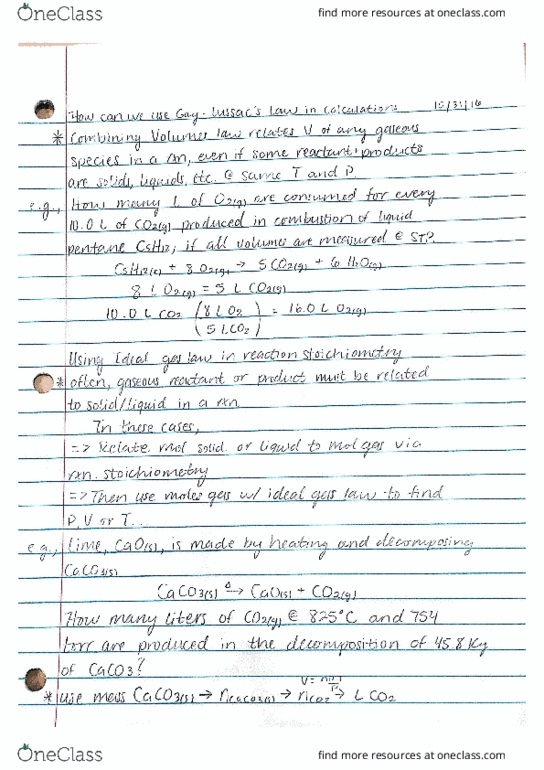 OneClass
find more resources at oneclass.com
How can we use Gay-Lussac's Law in calculations 10/31/16
* Combining Volumes law relates V of any gaseous
species in a rxn, even if some reactants/products
are solids, liquids, etc. @ same T and P.
e.g., How many L of O2(g) are consumed for every
10.0 L of CO2(g) produced in combustion of liquid
pentane C5H12, if all volumes are measured @ STP?
C5H12(l) + 8 O2(g) → 5 CO2(g) + 6 H2O(g)
8 L O2(g) = 5 L CO2(g)
10.0 L CO2 (8 L O2 / 5 L CO2) = 16.0 L O2(g)
Using Ideal gas law in reaction stoichiometry
* often, gaseous reactant or product must be related
to solid/liquid in a rxn
In these cases,
=> Relate mol solid or liquid to mol gas via
rxn. stoichiometry
=> Then use moles gas w/ ideal gas law to find
P, V or T.
e.g., lime, CaO(s), is made by heating and decomposing
CaCO3(s)
CaCO3(s) Δ→ CaO(s) + CO2(g)
How many liters of CO2(g) @ 825°C and 754
torr are produced in the decomposition of 45.8 Kg
of CaCO3?
V = nRT/P
* use mass CaCO3(s) → nCaCO3(s) → nCO2 → L CO2
OneClass
find more resources at oneclass.com